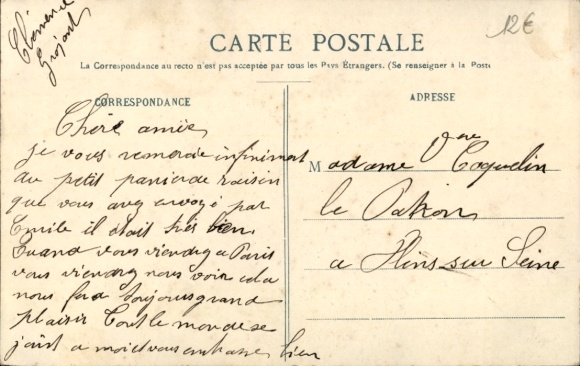 Clémence
12€
CARTE POSTALE
La Correspondance au recto n'est pas acceptée par tous les Pays Étrangers. (Se renseigner à la Poste
CORRESPONDANCE
ADRESSE
Chère amie
je vous remercie infiniment
du petit panier de raisin
que vous avez envoyé par
Emile il était très bien
Quand vous viendrez a Paris
vous viendrez nous voir cela
nous fera toujours grand
plaisir Tout le monde se
joint a moi et vous embrasse bien
Madame Vve Coquelin
le
a Flins sur Seine